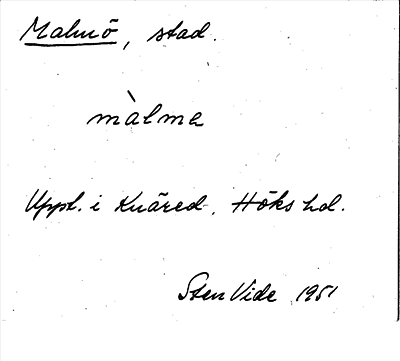 Malmö, stad.
màlma
Uppt. i Knäred. Höks hd.
Sten Vide 1951